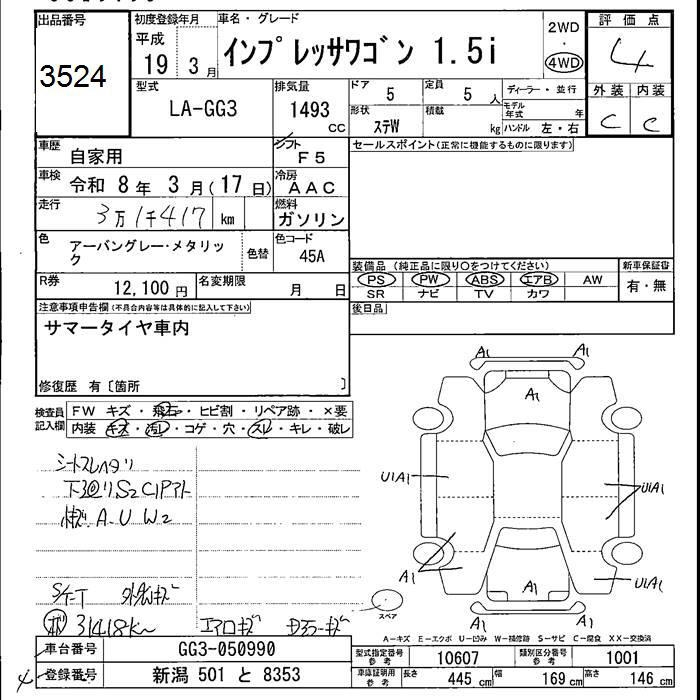 出品番号
3524
初度登録年月
平成
19 3月
車名・グレード
インプレッサワゴン 1.5i
2WD
・
4WD
評価点
4
外装 内装
C C
型式
LA-GG3
排気量
1493
CC
ドア
5
定員
5 人
形状
ステW
積載
kg
ディーラー・並行
モデル年式 年
ハンドル 左・右
車歴
自家用
シフト
F5
セールスポイント(正常に機能するものに限ります)
車検
令和 8年 3月(17日)
冷房
AAC
走行
3万1千417 km
燃料
ガソリン
色
アーバングレー・メタリック
色替
色コード
45A
R券
12,100円
名変期限
月 日
装備品 (純正品に限り○をつけてください)
PS PW ABS エアB AW
SR ナビ TV カワ
新車保証書
有・無
後日品
注意事項申告欄(不具合内容等は具体的に記入して下さい)
サマータイヤ車内
修復歴 有〔箇所 〕
検査員記入欄
FW キズ・飛石・ヒビ割・リペア跡・×要
内装 キズ・汚レ・コゲ・穴・スレ・キレ・破レ
シートスレヘタリ
下廻リS2 C1Pアト
A U W2
A1 A1
A1
A1
U1A1
U1A1
A1
A1
U1A1
A1 A1
スペア
31418k
エアロキズ
A-キズ E-エクボ U-凹み W-補修跡 S-サビ C-腐食 XX-交換済
車台番号
GG3-050990
登録番号
新潟 501 と 8353
4
型式指定番号
参考
10607
類別区分番号
参考
1001
車庫証明用
参考
長さ 445 cm
幅 169 cm
高さ 146 cm